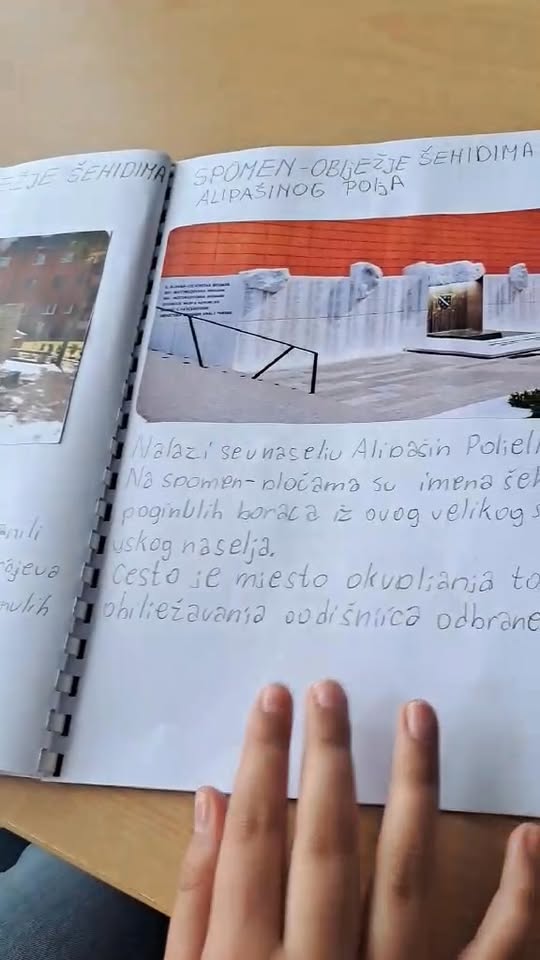 ŠEHIDIMA
anili
ajeva
nulih
SPOMEN-OBLJEŽJE ŠEHIDIMA
ALIPAŠINOG POLJA
Nalazi se u naselju Alipašin Polje
Na spomen-pločama su imena šeh
poginulih boraca iz ovog velikog s
uskog naselja.
Cesto je mjesto okupljanja to
obilježavanja godišnjica odbrane